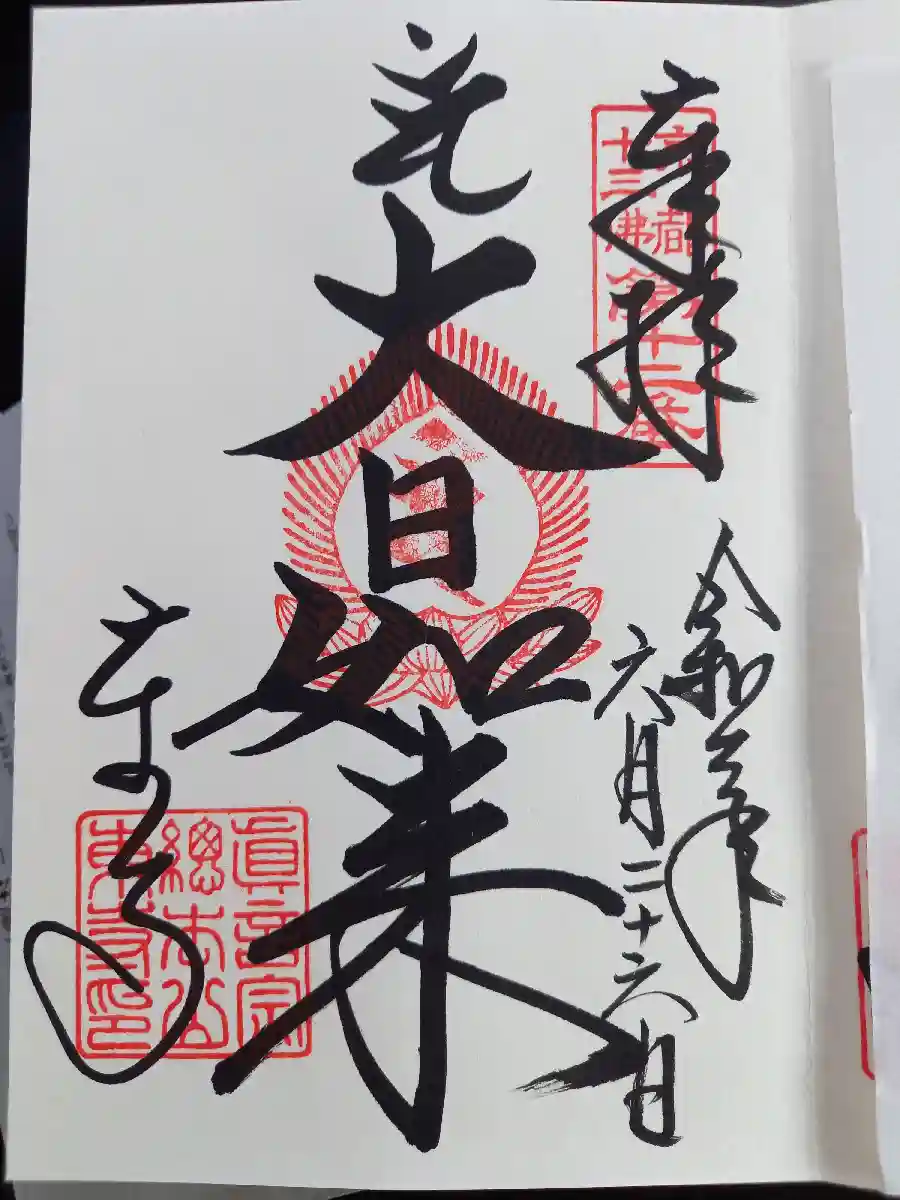 奉拝
京都
十三佛
第十二番
令和三年
六月二十六日
大日如来
東寺
眞言宗
總本山
東寺印